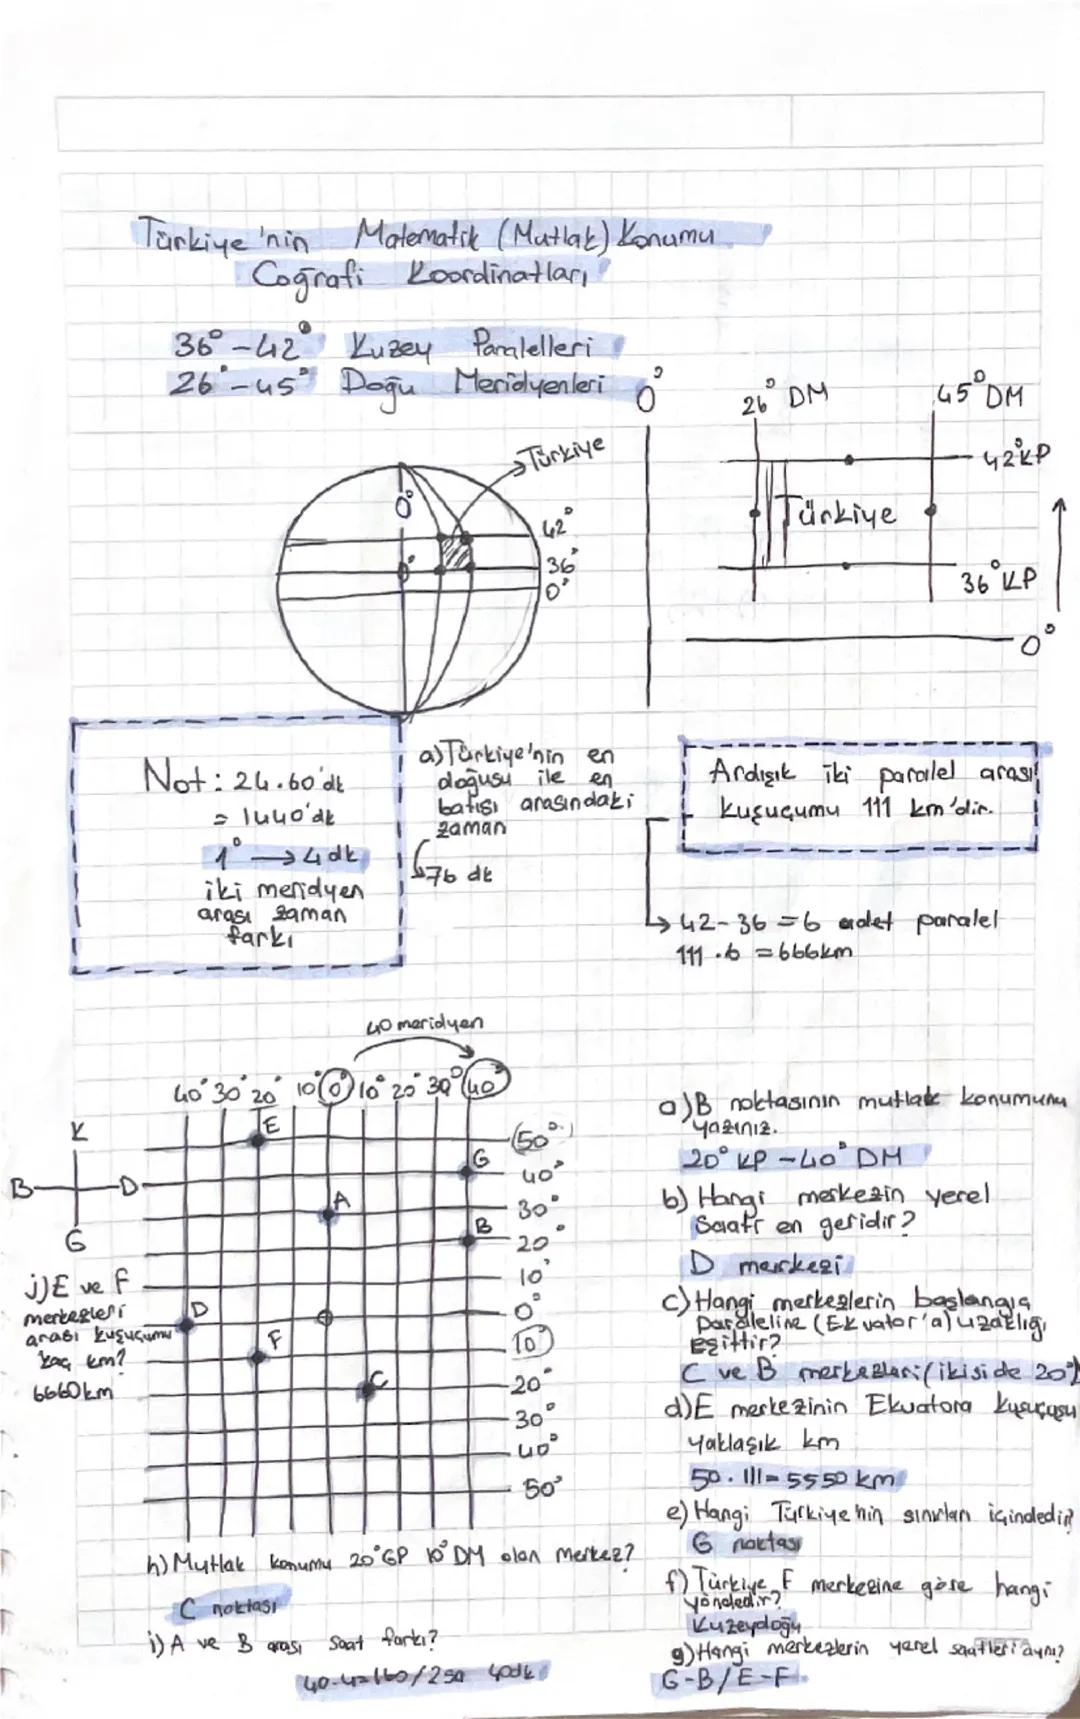 Türkiye'nin Matematik (Mutlak) Konumu
Coğrafi Koordinatları
36° - 42° Kuzey Paralelleri
26° - 45° Doğu Meridyenleri
0°
26° DM
45° DM
42° KP
Türkiye
36° KP
0°
Türkiye
0°
42°
36°
0°
0°
Not: 24.60'dk
= 1440'dk
1° → 4 dk
iki meridyen
arası zaman
farkı
a) Türkiye'nin en
doğusu ile en
batısı arasındaki
zaman
↳ 76 dk
Ardışık iki paralel arası
kuşuçumu 111 km'dir.
↳ 42-36 = 6 adet paralel
111 . 6 = 666km
40 meridyen
40° 30° 20° 10° 0° 10° 20° 30° 40°
K
B D
G
E
G
A
B
D
F
C
50°
40°
30°
20°
10°
0°
10°
20°
30°
40°
50°
j) E ve F
merkezleri
arası kuşuçumu
kaç km?
6660km
h) Mutlak konumu 20° GP 10° DM olan merkez?
C noktası
i) A ve B arası saat farkı?
40.4=160/2 sa 40dk
a) B noktasının mutlak konumunu
yazınız.
20° KP - 40° DM
b) Hangi merkezin yerel
saati en geridir?
D merkezi
c) Hangi merkezlerin başlangıç
paraleline (Ekvator'a) uzaklığı
eşittir?
C ve B merkezleri (ikiside 20°)
d) E merkezinin Ekvatora kuşuçuşu
yaklaşık km
50 . 111 = 5550 km
e) Hangi Türkiye'nin sınırları içindedir?
G noktası
f) Türkiye F merkezine göre hangi
yöndedir?
Kuzeydoğu
g) Hangi merkezlerin yerel saatleri aynı?
G-B / E-F